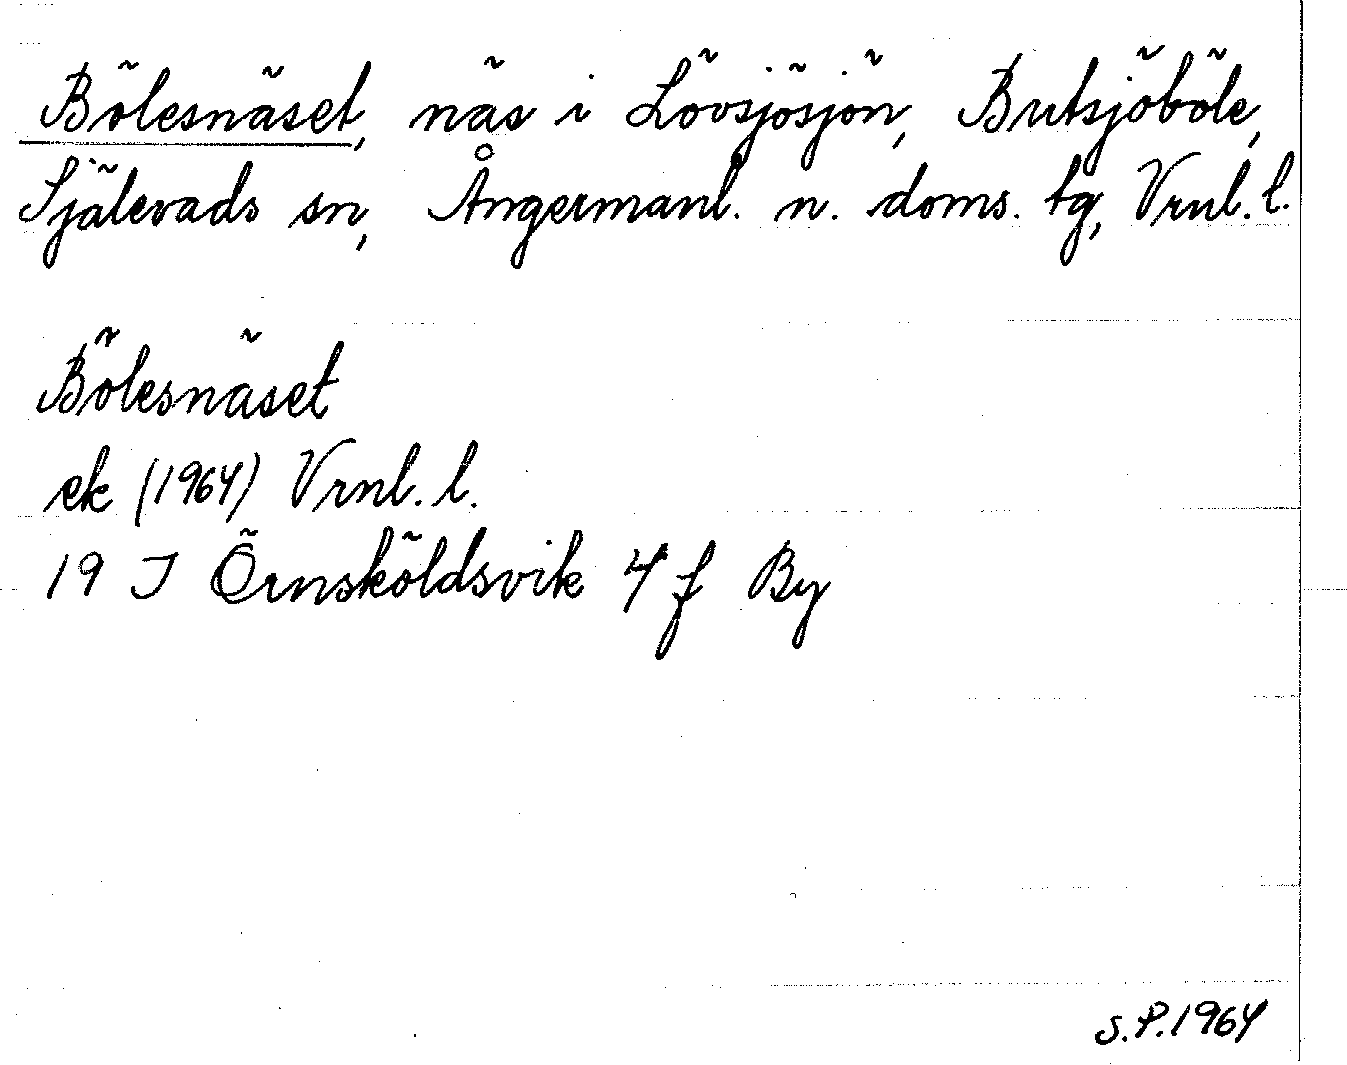 Bölesnäset, näs i Lövsjösjön, Brutsjöböle,
Själevads sn, Ångermanl. n. doms. tg, Vrnl. l.
Bölesnäset
ek (1964) Vrnl. l.
19 J Örnsköldsvik 4 f By
S.P.1964